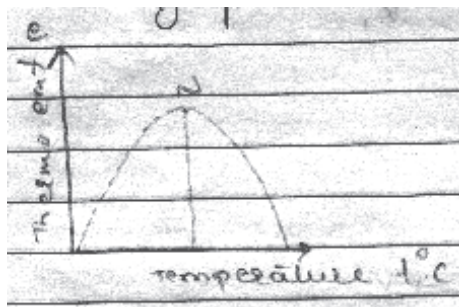 e
Thermo emf
N
Temperature t°C